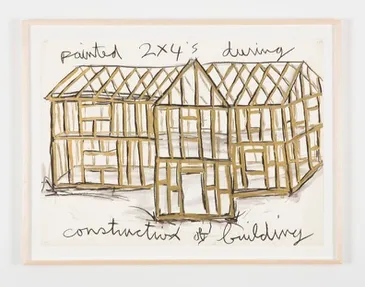 painted 2x4's during
construction of building